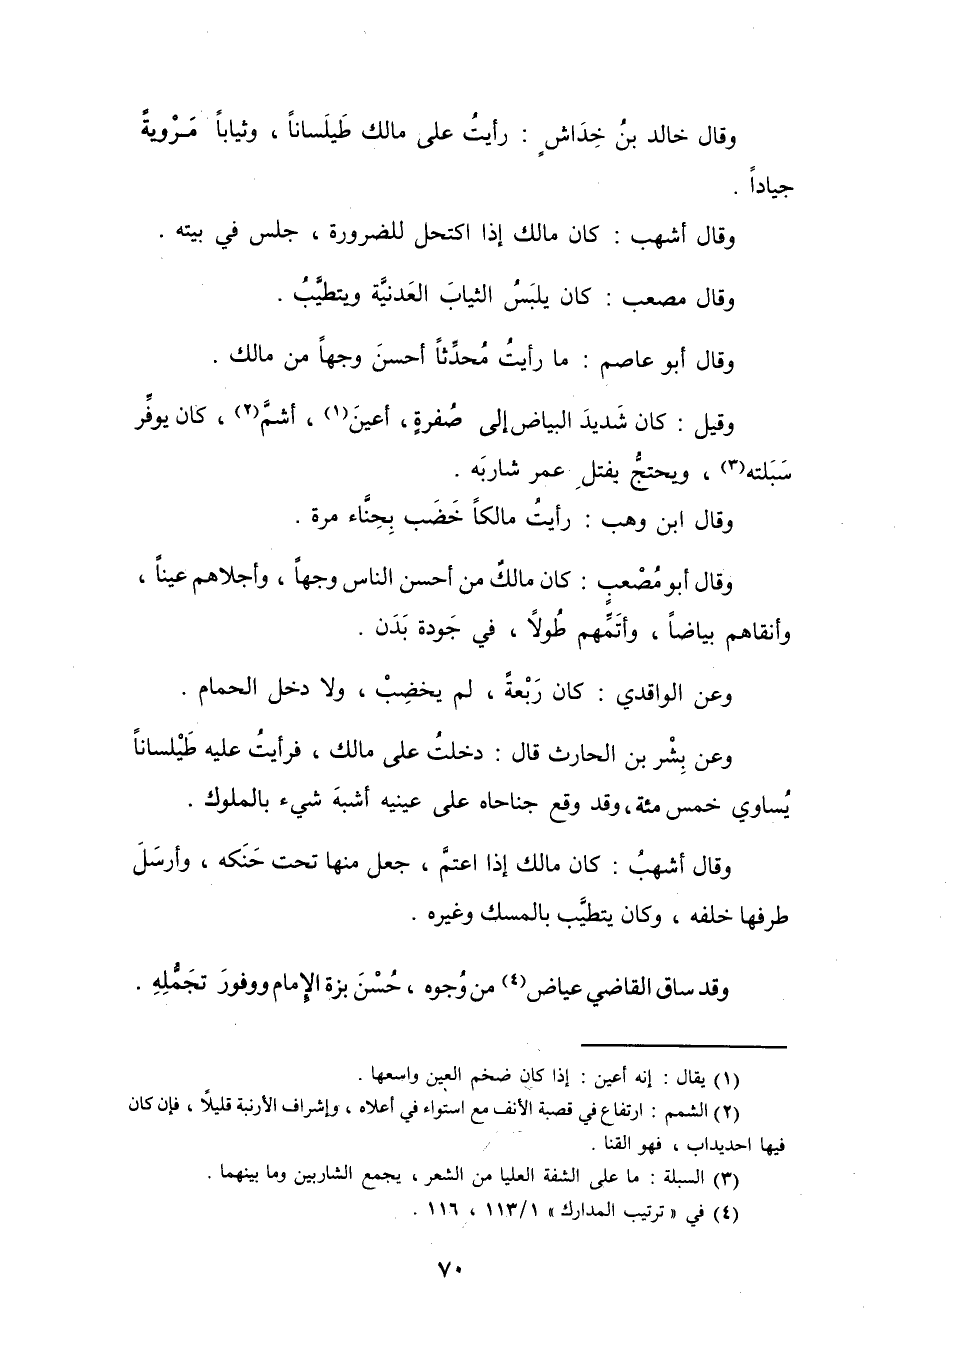 وقال خالد بنُ خِدَاشٍ : رأيتُ على مالك طَيلَساناً ، وثياباً مَرْويةً
جياداً .
وقال أشهب : كان مالك إذا اكتحل للضرورة ، جلس في بيته .
وقال مصعب : كان يلبَسُ الثيابَ العَدنيَّة ويتطيَّبُ .
وقال أبو عاصم : ما رأيتُ مُحدِّثاً أحسنَ وجهاً من مالك .
وقيل : كان شَديدَ البياض إلى صُفرةٍ ، أعينَ(١) ، أشمَّ(٢) ، كان يوفِّر
سَبَلته(٣) ، ويحتجُّ بفتلِ عمر شاربَه .
وقال ابن وهب : رأيتُ مالكاً خَضَب بِحِنَّاء مرة .
وقال أبو مُصْعبٍ : كان مالكٌ من أحسن الناس وجهاً ، وأجلاهم عيناً ،
وأنقاهم بياضاً ، وأتَمِّهم طُولاً ، في جَودة بَدَن .
وعن الواقدي : كان رَبْعةً ، لم يخضِبْ ، ولا دخل الحمام .
وعن بِشْر بن الحارث قال : دخلتُ على مالك ، فرأيتُ عليه طَيْلساناً
يُساوي خمس مئة ، وقد وقع جناحاه على عينيه أشبهَ شيء بالملوك .
وقال أشهبُ : كان مالك إذا اعتمَّ ، جعل منها تحت حَنَكه ، وأرسَلَ
طرفها خلفه ، وكان يتطيَّب بالمسك وغيره .
وقد ساق القاضي عياض(٤) من وُجوه ، حُسْنَ بزة الإمام ووفورَ تجَمُّلِهِ .
(١) يقال : إنه أعين : إذا كان ضخم العين واسعها .
(٢) الشمم : ارتفاع في قصبة الأنف مع استواء في أعلاه ، وإشراف الأرنبة قليلاً ، فإن كان
فيها احديداب ، فهو القنا .
(٣) السبلة : ما على الشفة العليا من الشعر ، يجمع الشاربين وما بينهما .
(٤) في « ترتيب المدارك » ١١٣/١ ، ١١٦ .
٧٠